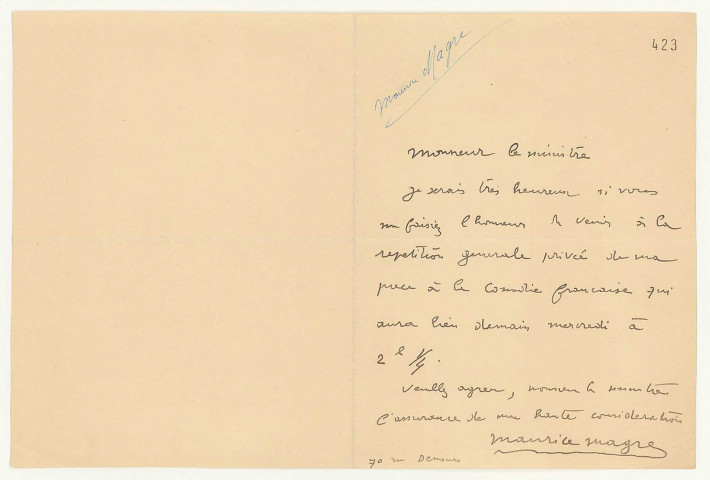 423
Maurice Magre
Monsieur le ministre
je serais très heureux si vous
me faisiez l'honneur de venir à la
repetition generale privée de ma
piece à la Comédie française qui
aura lieu demain mercredi à
2 h 1/4.
Veuillez agreer, monsieur le ministre
l'assurance de ma haute consideration
maurice magre
70 rue Demours